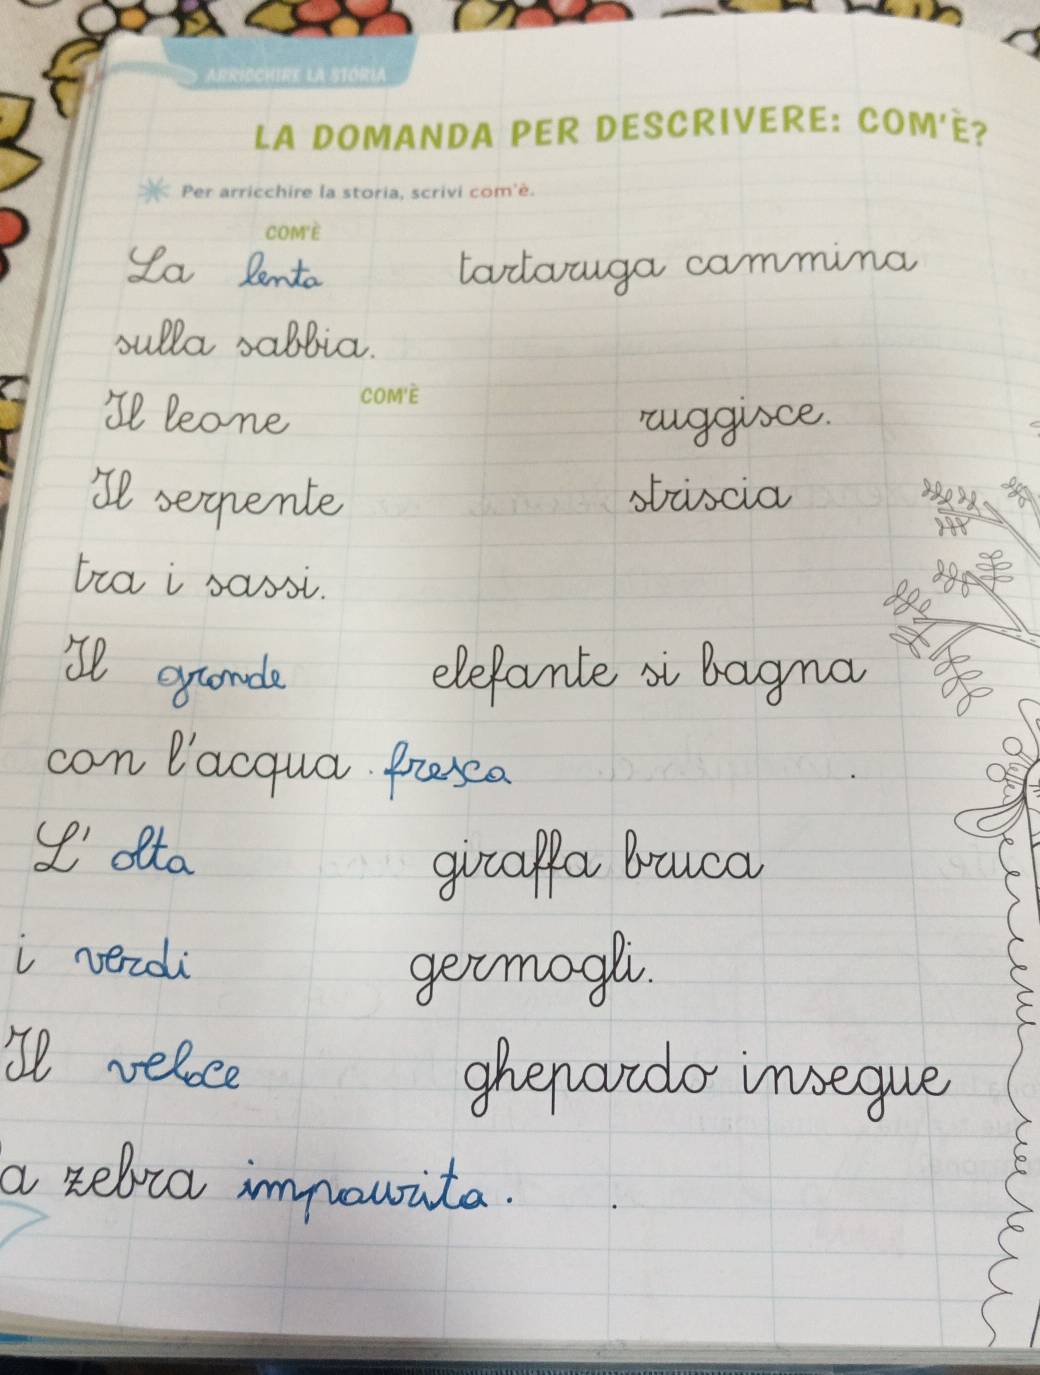 ARRICCHIRE LA STORIA
LA DOMANDA PER DESCRIVERE: COM'È?
Per arricchire la storia, scrivi com'è.
COM'È
La lenta tartaruga cammina
sulla sabbia.
COM'È
Il leone ruggisce.
Il serpente striscia
tra i sassi.
Il grande elefante si bagna
con l'acqua fresca .
L' alta giraffa bruca
i verdi germogli.
Il veloce ghepardo insegue
a zebra impaurita. .